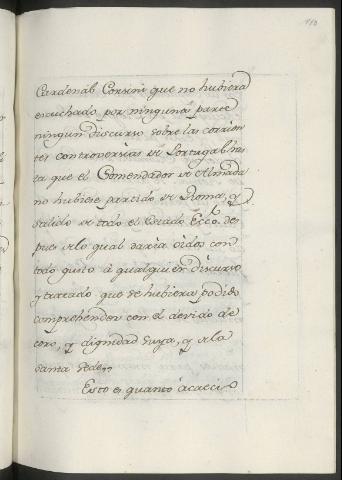 Cardenal Corsini que no hubiera
escuchado por ninguna parte
ningun discurso sobre las corrien
tes controversias de Portugal, has
ta que el Comendador de Almada
no hubiese partido de Roma, y
salido de todo el Estado Ecc.co des
pues de lo qual daria oidos con
todo gusto à qualquier discurso
y tratado que se hubiera podido
comprehender con el devido de
coro, y dignidad suya, y de la
Santa Sede,,
Esto es quanto àcaeciò